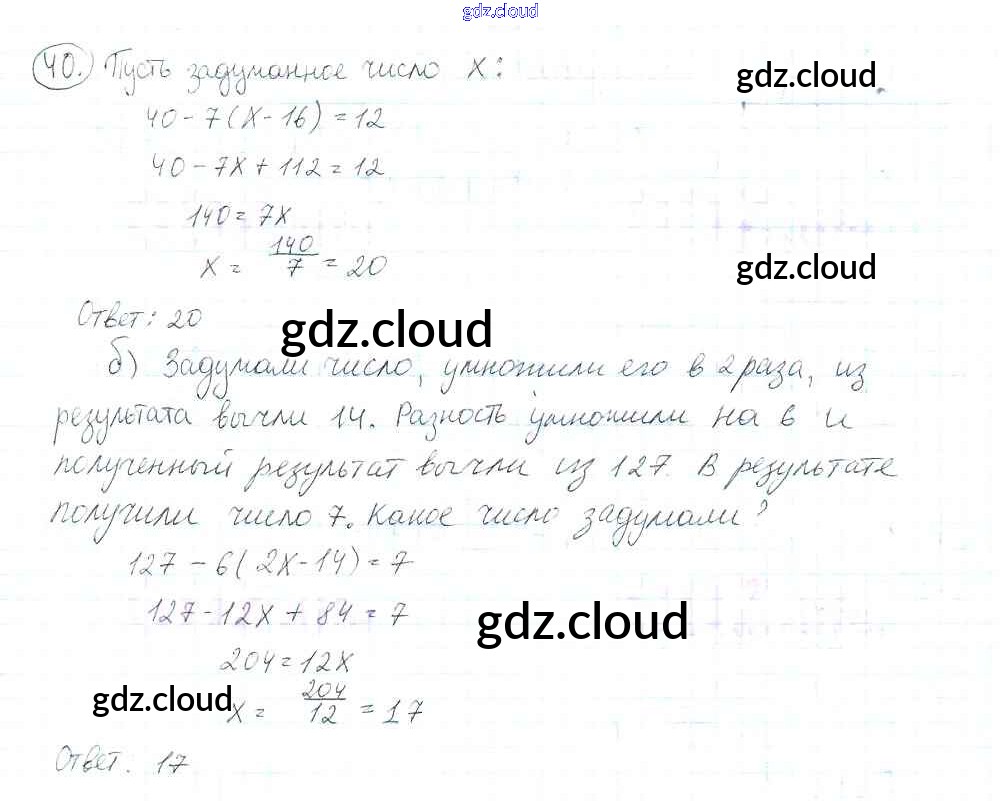 gdz.cloud
40. Пусть задуманное число x:
gdz.cloud
40 - 7(x - 16) = 12
40 - 7x + 112 = 12
140 = 7x
x = 140/7 = 20
gdz.cloud
Ответ: 20
gdz.cloud
б) Задумали число, умножили его в 2 раза, из
результата вычли 14. Разность умножили на 6 и
полученный результат вычли из 127. В результате
получили число 7. Какое число задумали?
127 - 6(2x - 14) = 7
127 - 12x + 84 = 7
gdz.cloud
204 = 12x
gdz.cloud
x = 204/12 = 17
Ответ. 17